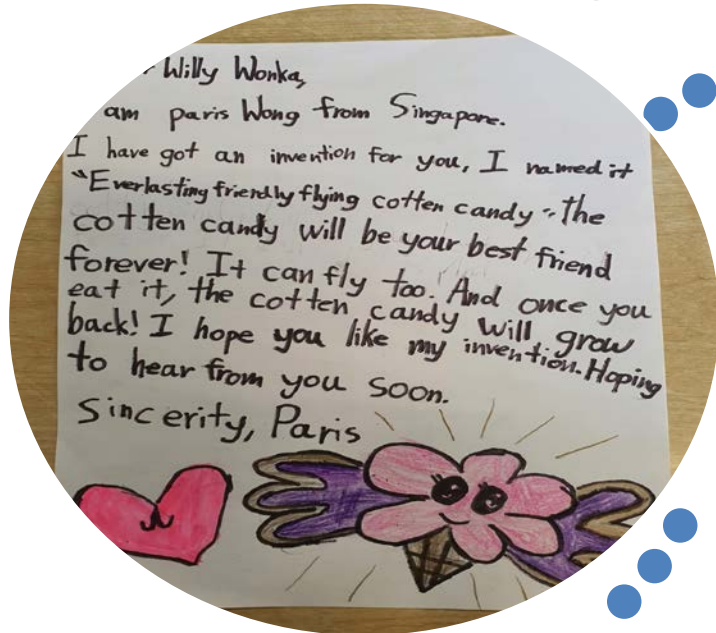 Willy Wonka,
am paris Wong from Singapore.
I have got an invention for you, I named it
"Everlasting friendly flying cotten candy" the
cotten candy will be your best friend
forever! It can fly too. And once you
eat it, the cotten candy will grow
back! I hope you like my invention. Hoping
to hear from you soon.
Sincerity, Paris